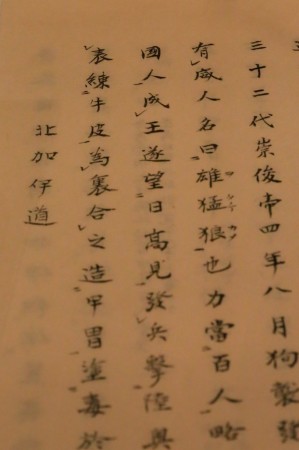 三十二代崇俊帝四年八月狗製發
有威人名曰雄猛狼也力當百人略
國人成王遂望日高見發兵擊陸奧
表練牛皮爲裏合之造甲冑塗毒於
北加伊道